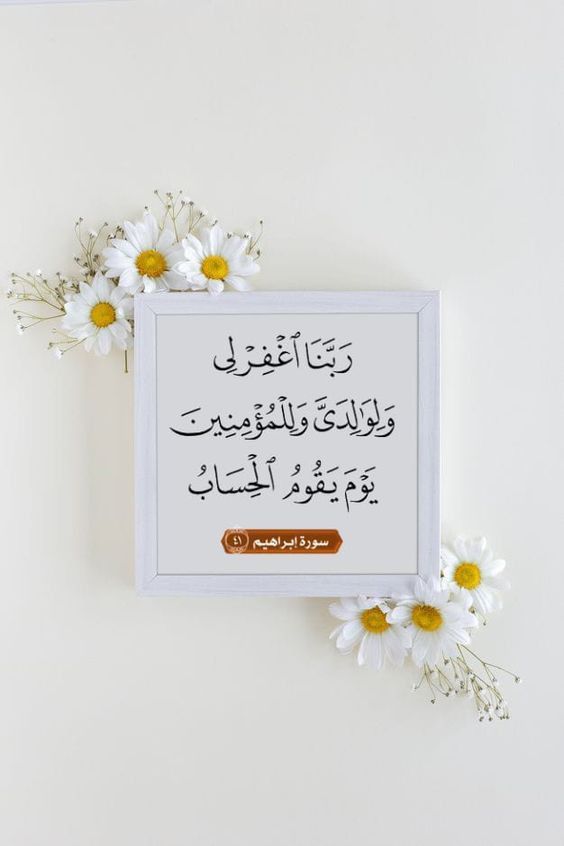 رَبَّنَا ٱغْفِرْ لِى
وَلِوَٰلِدَىَّ وَلِلْمُؤْمِنِينَ
يَوْمَ يَقُومُ ٱلْحِسَابُ
سورة إبراهيم ٤١